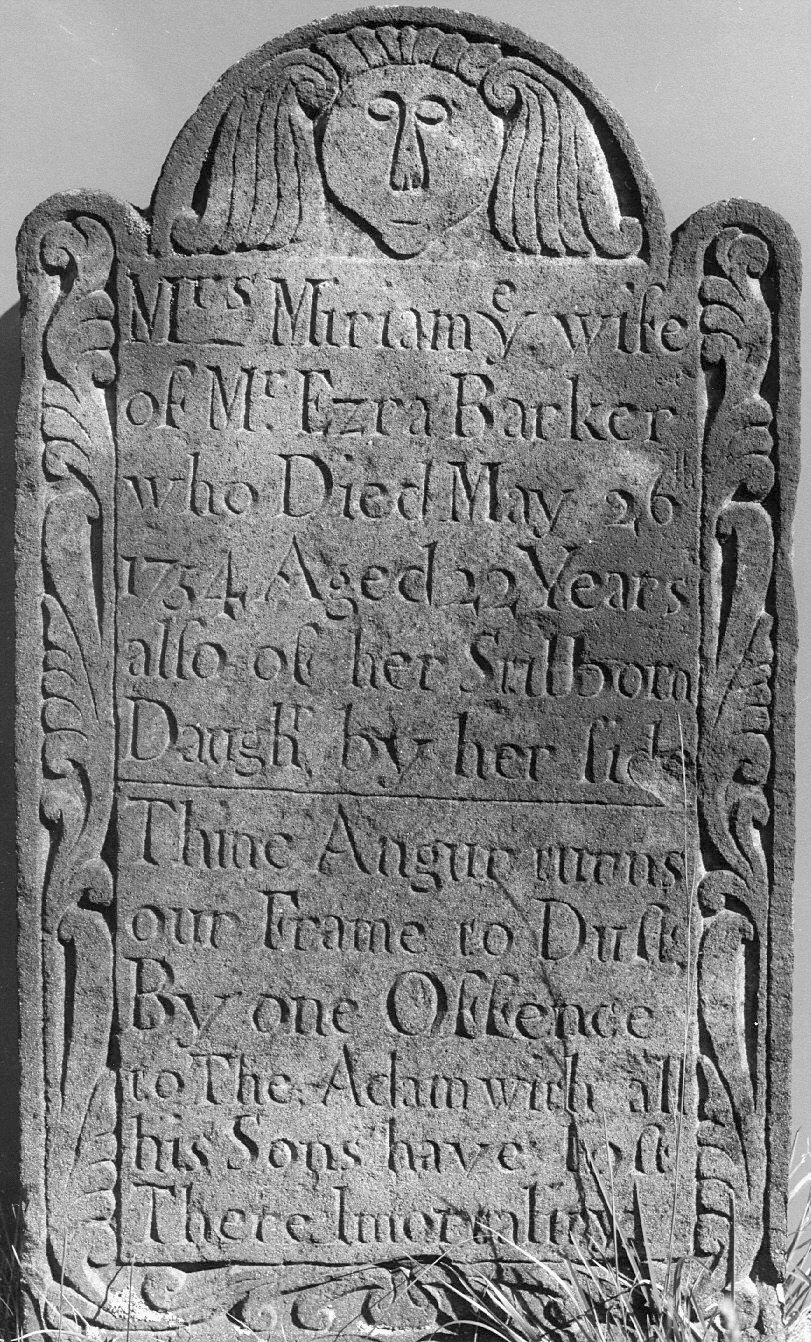 Mrs Miriam ye wife
of Mr. Ezra Barker
who Died May 26th
1754 Aged 22 Years
alſo of her Stillborn
Daughr by her ſide
Thine Angur turns
our Frame to Duſt
By one Offence
to The Adam with all
his Sons have loſt
There Imortality